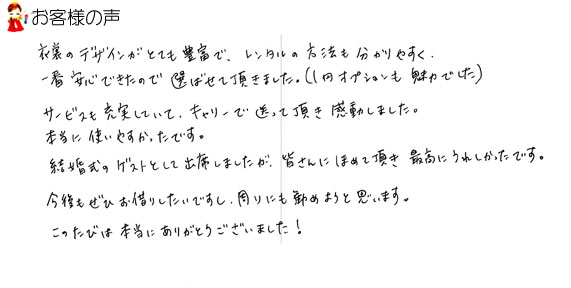 お客様の声
衣裳のデザインがとても豊富で、レンタルの方法も分かりやすく、
一番安心できたので選ばせて頂きました。(1円オプションも魅力でした)
サービスも充実していて、キャリーで送って頂き感動しました。
本当に使いやすかったです。
結婚式のゲストとして出席しましたが、皆さんにほめて頂き最高にうれしかったです。
今後もぜひお借りしたいですし、周りにも勧めようと思います。
このたびは本当にありがとうございました!